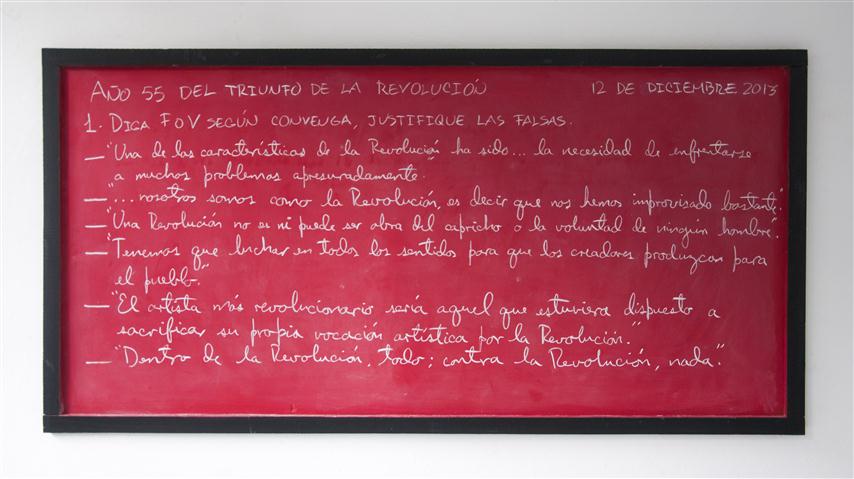 AÑO 55 DEL TRIUNFO DE LA REVOLUCIÓN 12 DE DICIEMBRE 2013
1. DIGA F O V SEGÚN CONVENGA, JUSTIFIQUE LAS FALSAS.
— "Una de las características de la Revolución ha sido... la necesidad de enfrentarse
a muchos problemas apresuradamente."
— "... nosotros somos como la Revolución, es decir que nos hemos improvisado bastante."
— "Una Revolución no es ni puede ser obra del capricho o la voluntad de ningún hombre".
— "Tenemos que luchar en todos los sentidos para que los creadores produzcan para
el pueblo."
— "El artista más revolucionario sería aquel que estuviera dispuesto a
sacrificar su propia vocación artística por la Revolución."
— "Dentro de la Revolución, todo; contra la Revolución, nada".